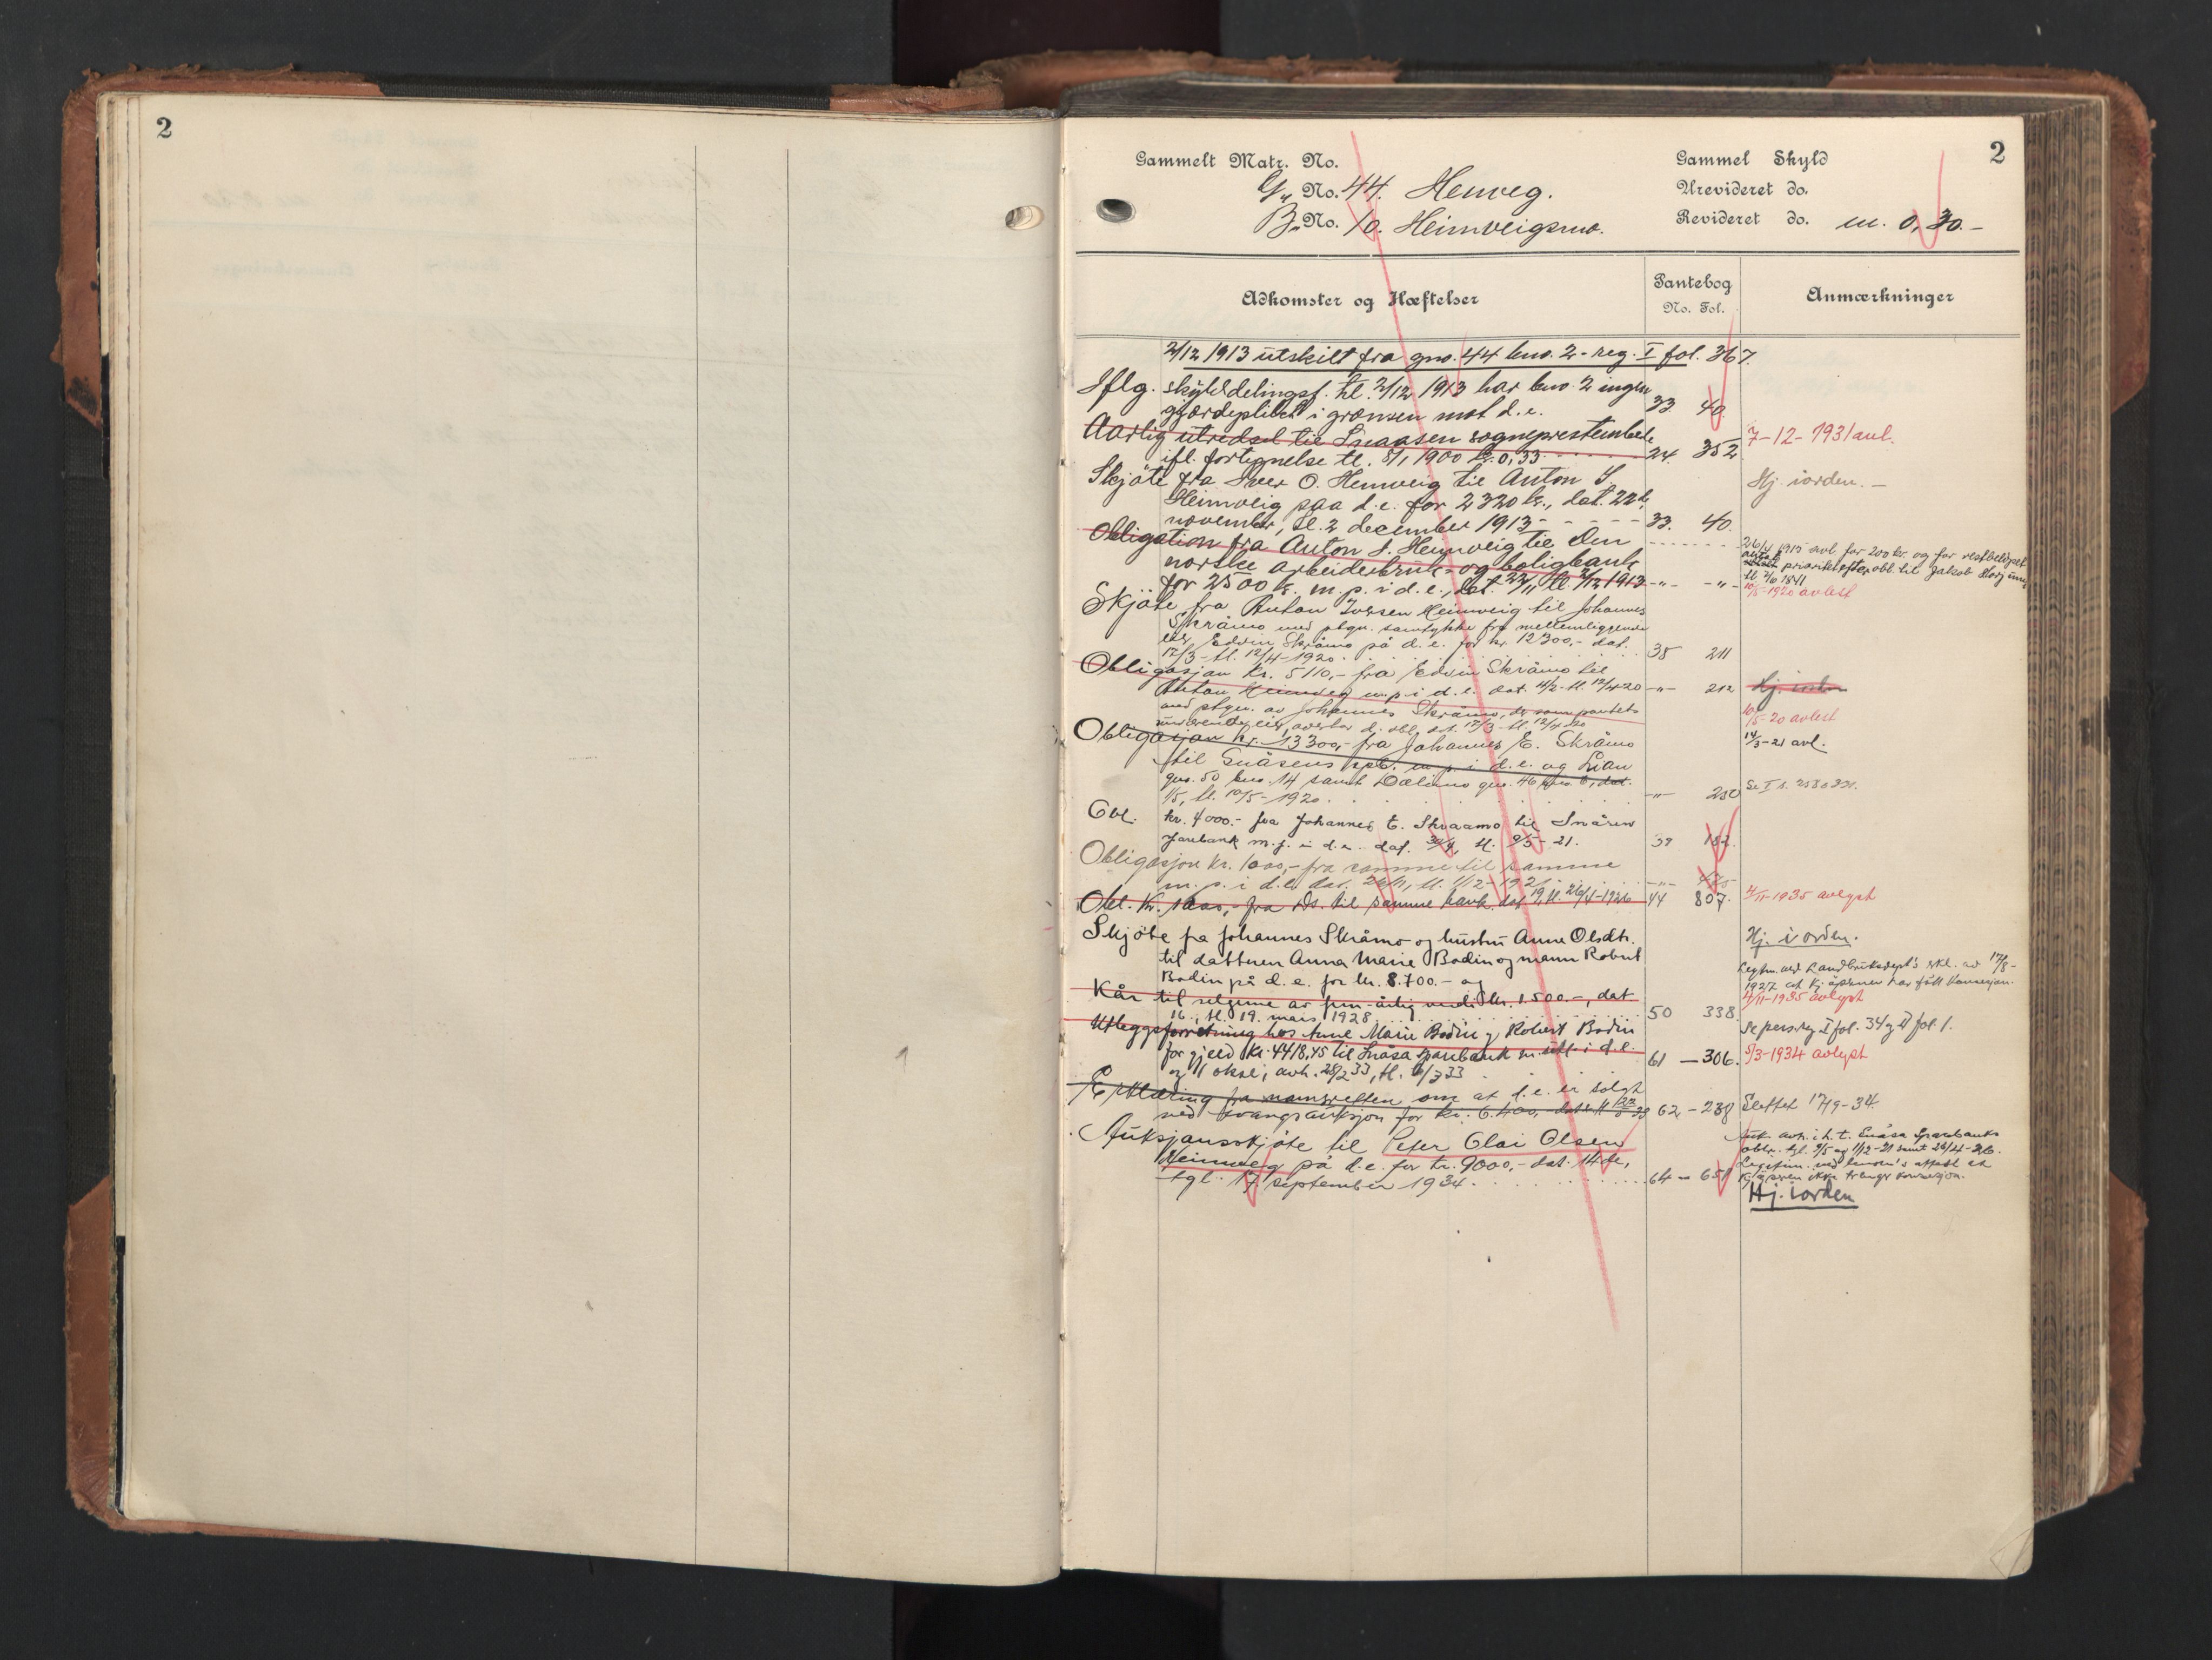 2
2
Gammelt Matr. No.
G. No. 44. Hemveg.
B. No. 10. Heimveigsmo.
Gammel Skyld
Urevideret do.
Revideret do. m. 0,30.-
Adkomster og Hæftelser
Pantebog
No. Fol.
Anmærkninger
2/12 1913 utskilt fra gno. 44 bno. 2 - reg. I fol. 367.
Iflg. skylddelingsf. tl. 2/12 1913 har bno. 2 ingen
gjærdeplikt i grænsen mot d.e. 33 40
Aarlig utredsel til Snaasen sogneprestembede 7-12-1931 avl.
ifl. fortegnelse tl. 8/1 1900 kr. 0,33 24. 352
Skjøte fra Iver O. Hemveig til Anton I. Hj. iorden. -
Heimveig paa d.e. for 2320 kr., dat. 22de
november, tl. 2 december 1913 - - - - - 33. 40.
Obligation fra Anton I. Heimveig til Den
norske arbeiderbruk- og boligbank
for 2500 kr. m. p. i d.e., dat. 22/11 tl. 2/12 1913 -"- -"-
26/4 1915 avl. for 200 kr. og for restbeløpet
prioritet efter obl. til Jakob
10/5-1920 avlest
Skjøte fra Anton Iversen Heimveig til Johannes
Skråmo med ptgn. samtykke fra mellemliggende
eier Edvin Skråmo på d.e. for kr. 12300,- dat.
12/3 - tl. 12/4-1920 35 211
Obligasjon kr. 5110,- fra Edvin Skråmo til
Anton Heimveg m.p. i d.e. dat. 14/2 - tl. 12/4-20 -"- 212
med ptgn. av Johannes Skråmo, der som pantets
nuværende eier, overtar d. obl. dat. 12/3 - tl. 12/4-20
10/5-20 avlest
Obligasjon kr. 13300,- fra Johannes E. Skråmo 14/3-21 avl.
til Snåsens spb. m.p. i d.e. og Lian
gno. 50 bno. 14 samt Dalimo gno. 46 bno. 6, dat.
1/5, tl. 10/5-1920. -"- 250 Se I s. 258 a 391.
Obl. kr. 4000.- fra Johannes E. Skraamo til Snåsen
Sparebank m.p. i d.e. dat. 30/4, tl. 9/5-21. 39 182.
Obligasjon kr. 1000,- fra samme til samme
m.p. i d.e. dat. 26/11, tl. 1/12-1921 -"-
Obl. Kr. 1000,- fra ds. til samme bank. dat. 19, tl. 26/4-1926 44 807. 4/11-1935 avlyst
Skjöte fra Johannes Skråmo og hustru Anne Olsdtr. Hj. i orden.
til datteren Anna Marie Bodin og mann Robert
Bodin på d.e. for kr. 8.700.- og
Legtm. ved Landbruksdept's erkl. av 17/8-
1927 at kjøperne har fått konsesjon.
Kår til selgerne av fem-årlig verdi kr. 1.500.-, dat. 4/11-1935 avlyst
16., tl. 19. mars 1928 50 338
Utleggsforretning hos Anne Marie Bodin og Robert Bodin Se pers.reg. I fol. 34 og II fol. 1.
for gjeld kr. 4418,45 til Snåsa Sparebank m. utl. i d.e.
og 1 okse, avh. 28/2 33, tl. 6/3 33 61 - 306. 5/3-1934 avlyst
Erklæring fra namsretten om at d.e. er solgt
ved tvangsauksjon for kr. 6.400,- 62 - 238 Slettet 17/9-34.
Auksjonsskjøte til Peter Olai Olsen
Heimveg på d.e. for kr. 9000,- dat. 14de,
tgl. 17. september 1934. 64 - 651
Auk. avh. i h.t. Snåsa Sparebanks
obl. tgl. 9/5 og 1/12-21 samt 26/4-26.
Legitim. ved lensm's attest at
kjøperen ikke trenger konsesjon.
Hj. iorden